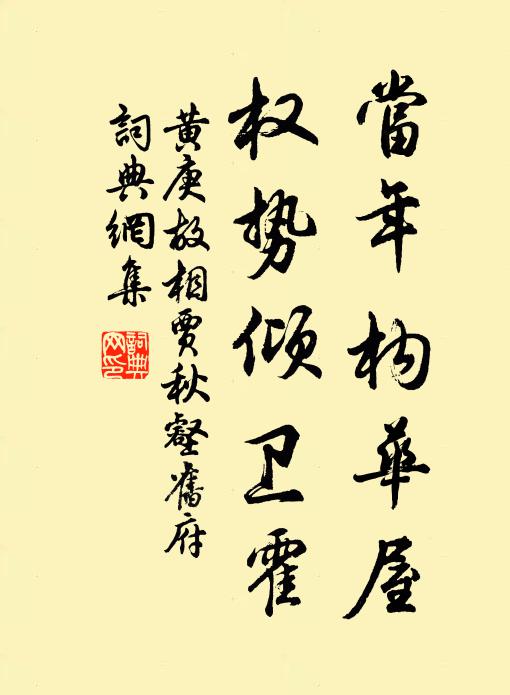 當年构華屋
权势倾卫霍
黄庚故相賈秋壑舊府
詞典網集
詞典
网印